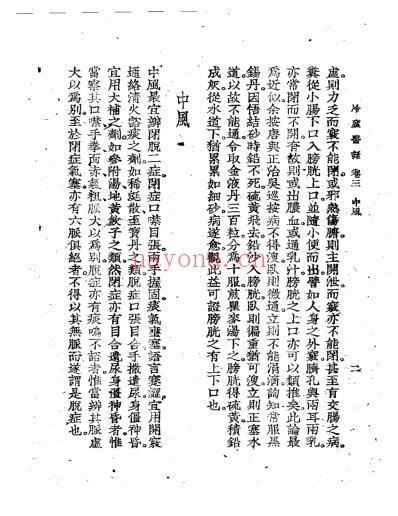 冷廬醫話 卷三 中風
二
虛則力乏而竅不能閉或邪熱傷臍則主開泄而竅亦不能閉甚至有交腸之病
糞從小腸下口入膀胱上口並隨小便而出譬如人身之外竅臍孔與兩耳兩乳
亦常閉而不開有故則或出膿血或通乳汁膀胱之上口亦可以類推矣此論最
為近似余按唐與正治吳巡按病不得溲臥則微通立則不能涓滴詢知常服黑
錫丹因悟結砂時鉛不死硫黃飛去鉛沙入膀胱臥則偏重猶可溲立則正塞水
道以故不能通令取金液丹三百粒分為十服煎瞿麥湯下之膀胱得硫黃積鉛
成灰從水道下猶累累如細砂病遂愈觀此益可證膀胱之有上下口也
中風
中風最宜辨閉脫二症閉症口噤目張兩手握固痰氣壅塞語言蹇澀宜用開竅
通絡清火豁痰之劑如稀涎散至寶丹之類脫症口張目合手撒遺尿身僵神昏
宜用大補之劑如參附湯地黃飲子之類然閉症亦有目合遺尿身僵神昏者惟
當察其口噤手拳面赤氣粗脈大以為別脫症亦有痰鳴不語者惟當辨其脈虛
大以為別至於閉症氣塞亦有六脈俱絕者不得以其無脈而遂謂是脫症也
anyong.cn